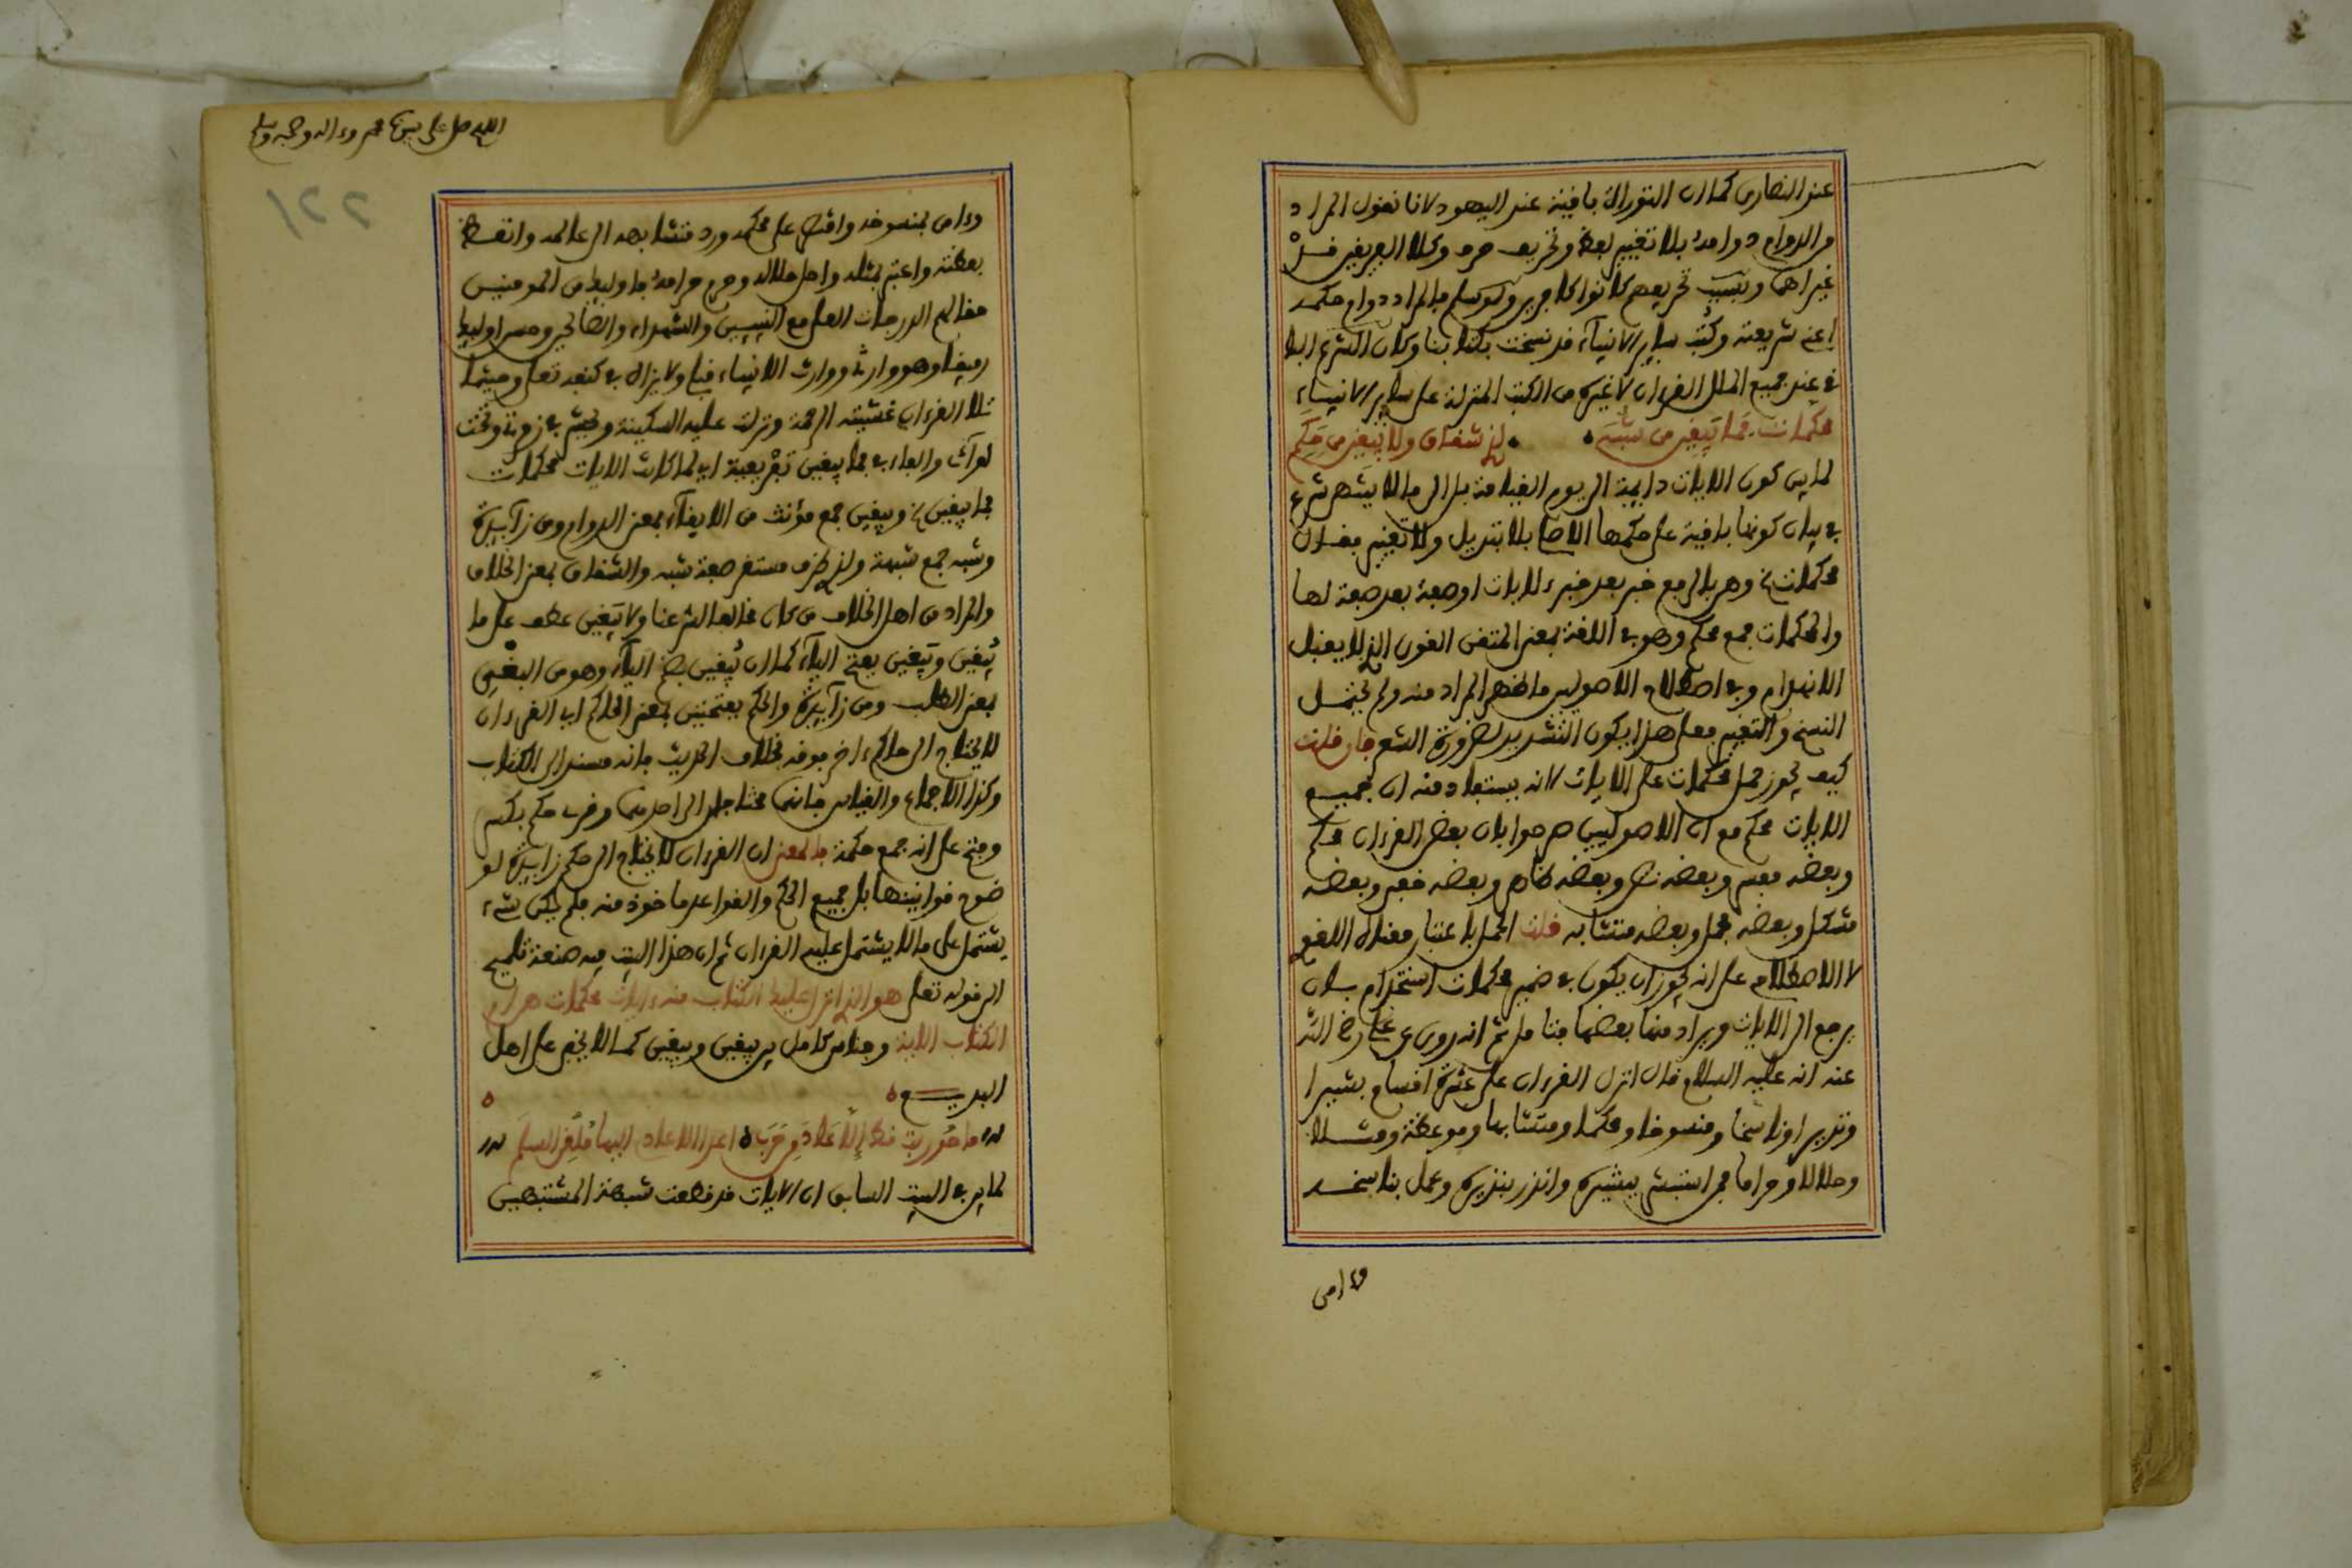 عند النصارى كما ان التوراة باقية عند اليهود لانا نقول المراد
من الدوام دوامه بلا تغيير لفظ وتحريف حرف وكلا الفريقين قد
غيراهما وبسبب تحريفهم كانوا كافرين ولو سلم فالمراد دوام حكمه
اعني شريعته وكتب ساير الانبياء قد نسخت بكتابنا وكان الشرع البا
في عند جميع الملل القرءان لا غيره من الكتب المنزلة على ساير الانبياء
محكمات فما تبقين من شبه لذي شقاق ولا يبغين من حكم
لما بين كون الايات دايمة الى يوم القيامة بل الى ما لا ينتهي شرع
في بيان كونها باقية على حكمها الاصلي بلا تبديل ولا تغيير فقال
محكمات وهي بالرفع خبر بعد خبر للايات او صفة بعد صفة لها
والمحكمات جمع محكم وهو في اللغة بمعنى المتقن القوي الذي لا يقبل
الانهدام وفي اصطلاح الاصوليين ما ظهر المراد منه ولم يحتمل
النسخ والتغيير فعلى هذا يكون التشديد لضرورة الشعر فان قلت
كيف يجوز حمل محكمات على الايات لانه يستفاد منه ان جميع
الايات محكم مع ان الاصوليين صرحوا بان بعض القرءان محكم
وبعضه مفسر وبعضه نص وبعضه ظاهر وبعضه خفي وبعضه
مشكل وبعضه مجمل وبعضه متشابه قلت الحمل باعتبار معناه اللغوي
لا الاصطلاحي على انه يجوز ان يكون في ضمير محكمات استخدام بان
يرجع الى الايات ويراد منها بعضها فتامل ثم انه روي عن علي رضي الله
عنه انه عليه السلام قال انزل القرءان على عشرة اقسام بشيرا
ونذيرا وناسخا ومنسوخا ومحكما ومتشابها وموعظة ومثلا
وحلالا وحراما فمن استبشر ببشيره وانذر بنذيره وعمل بناسخه
وءامن
اللهم صل على نبينا محمد وءاله وصحبه وسلم
١٢٢
وءامن بمنسوخه واقتصر على محكمه ورد متشابهه الى عالمه واتعظ
بعظته واعتبر بمثله واحل حلاله وحرم حرامه فاوليك من المومنين
حقا لهم الدرجات العلى مع النبيين والشهداء والصالحين وحسن اوليك
رفيقا وهو وارثي ووارث الانبياء قبلي ولا يزال في كنف الله تعلى وحيثما
تلا القرءان غشيته الرحمة ونزلت عليه السكينة ويحشر في زمرتي وتحت
لوآئي والفاء في فما يبقين تفريعية اي لما كانت الايات محكمات
فما يبقين ويبقين جمع مؤنث من الابقاء بمعنى الدوام ومن زآيدة
وشبه جمع شبهة ولذي ظرف مستقر صفة شبه والشقاق بمعنى الخلاف
والمراد من اهل الخلاف من كان مخالفا لشرعنا ولا يبغين عطف على ما
يبقين ويبغين بفتح اليآء كما ان يبقين بضم اليآء وهو من البغي
بمعنى الطلب ومن زآيدة والحكم بفتحتين بمعنى الحاكم اي القرءان
لا يحتاج الى حاكم ءاخر فوقه بخلاف الحديث فانه مستند الى الكتاب
وكذا الاجماع والقياس فانهما محتاجان الى احد منهما وفي حكم بكسر
وفتح على انه جمع حكمة فالمعنى ان القرءان لا يحتاج الى حكم زايدة لو
ضوح قوانينها بل جميع الحكم والقواعد ماخوذ منه فلم يكن شيء
يشتمل على ما لا يشتمل عليه القرءان ثم ان هذا البيت فيه صنعة تلميح
الى قوله تعلى هو الذي انزل عليك الكتاب منه ءايات محكمات هن ام
الكتاب الاية وجناس كامل بين يبقين ويبغين كما لا يخفى على اهل
البديع
ما حوربت قط الا عاد من حرب اعدى الاعادي اليها ملقي السلم
لما بين في البيت السابق ان الايات قد قطعت شبهة المشتبهين